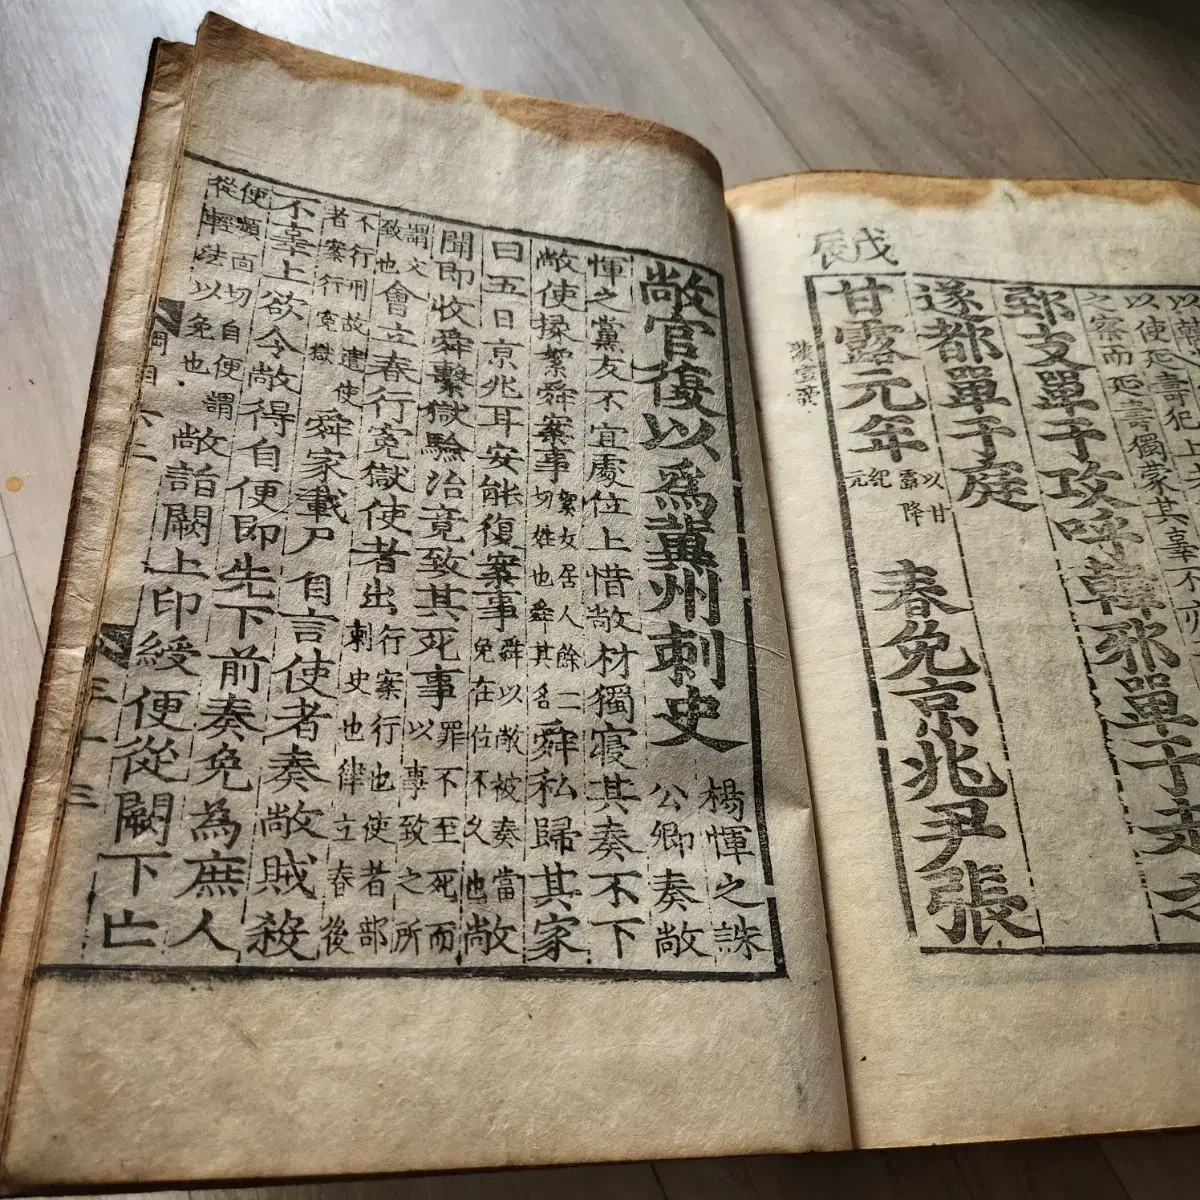 之察而延壽獨蒙其辜
郅支單于攻呼韓邪單于走之
遂都單于庭
戊辰
甘露元年 以甘露降紀元 春免京兆尹張
漢宣帝
敞官復以爲冀州刺史 楊惲之誅公卿奏敞
惲之黨友不宜處位上惜敞材獨寢其奏不下
敞使掾絮舜案事 絮女居人餘二切姓也舜其名 舜私歸其家
曰五日京兆耳安能復案事 舜以敞被奏當免在位不久也 敞
聞即收舜繫獄驗治竟致其死事 罪不至死而以事致之所
謂文致也 會立春行冤獄使者出 行案行也使者部刺史也律立春後
不行刑故遣使者案行冤獄 舜家載尸自言使者奏敞賊殺
不辜上欲令敞得自便即先下前奏免為庶人
便頻面切自便謂從輕法以免也 敞詣闕上印綬便從闕下亡
三十三